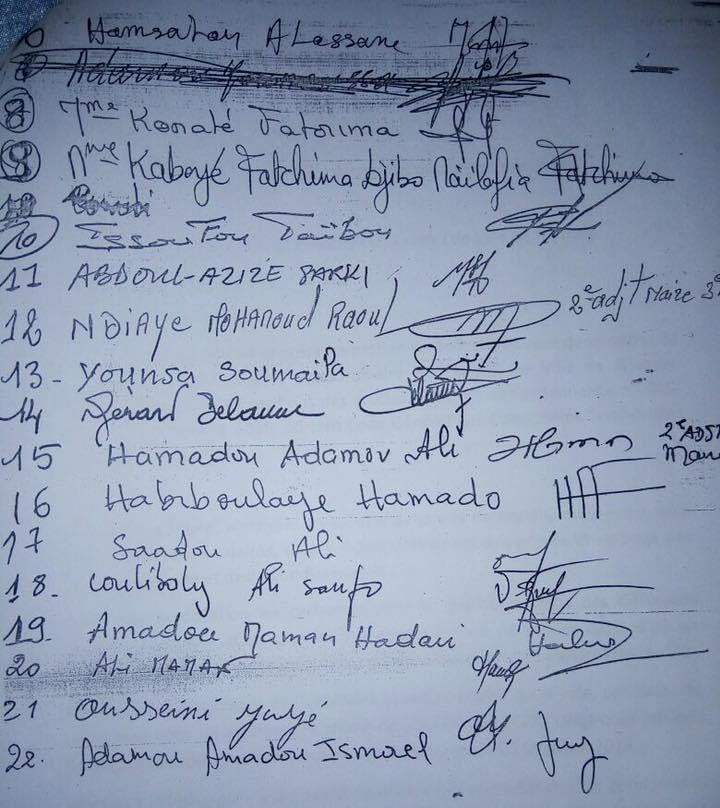 Hamsatou Alassane
8 Mme Konaté Fatouma
9 Mme Kabayé Fatchima Djibo Naïlafia Fatchima
10 Issoufou Taïbou
11 ABDOUL-AZIZE SARKI
12 NDiAye MOHAMOUD Raoul 2e adjt Maire 3e
13- Younsa Soumaila
14 Gérard Delanne
15 Hamadou Adamou Ali 2e ADJT
16 Habiboulaye Hamado
17 Saadou Ali
18. Coulibaly Ali Sanfo
19. Amadou Maman Hadari
20 Ali MAMAN
21 Ousseini Yayé
22. Adamou Amadou Ismael